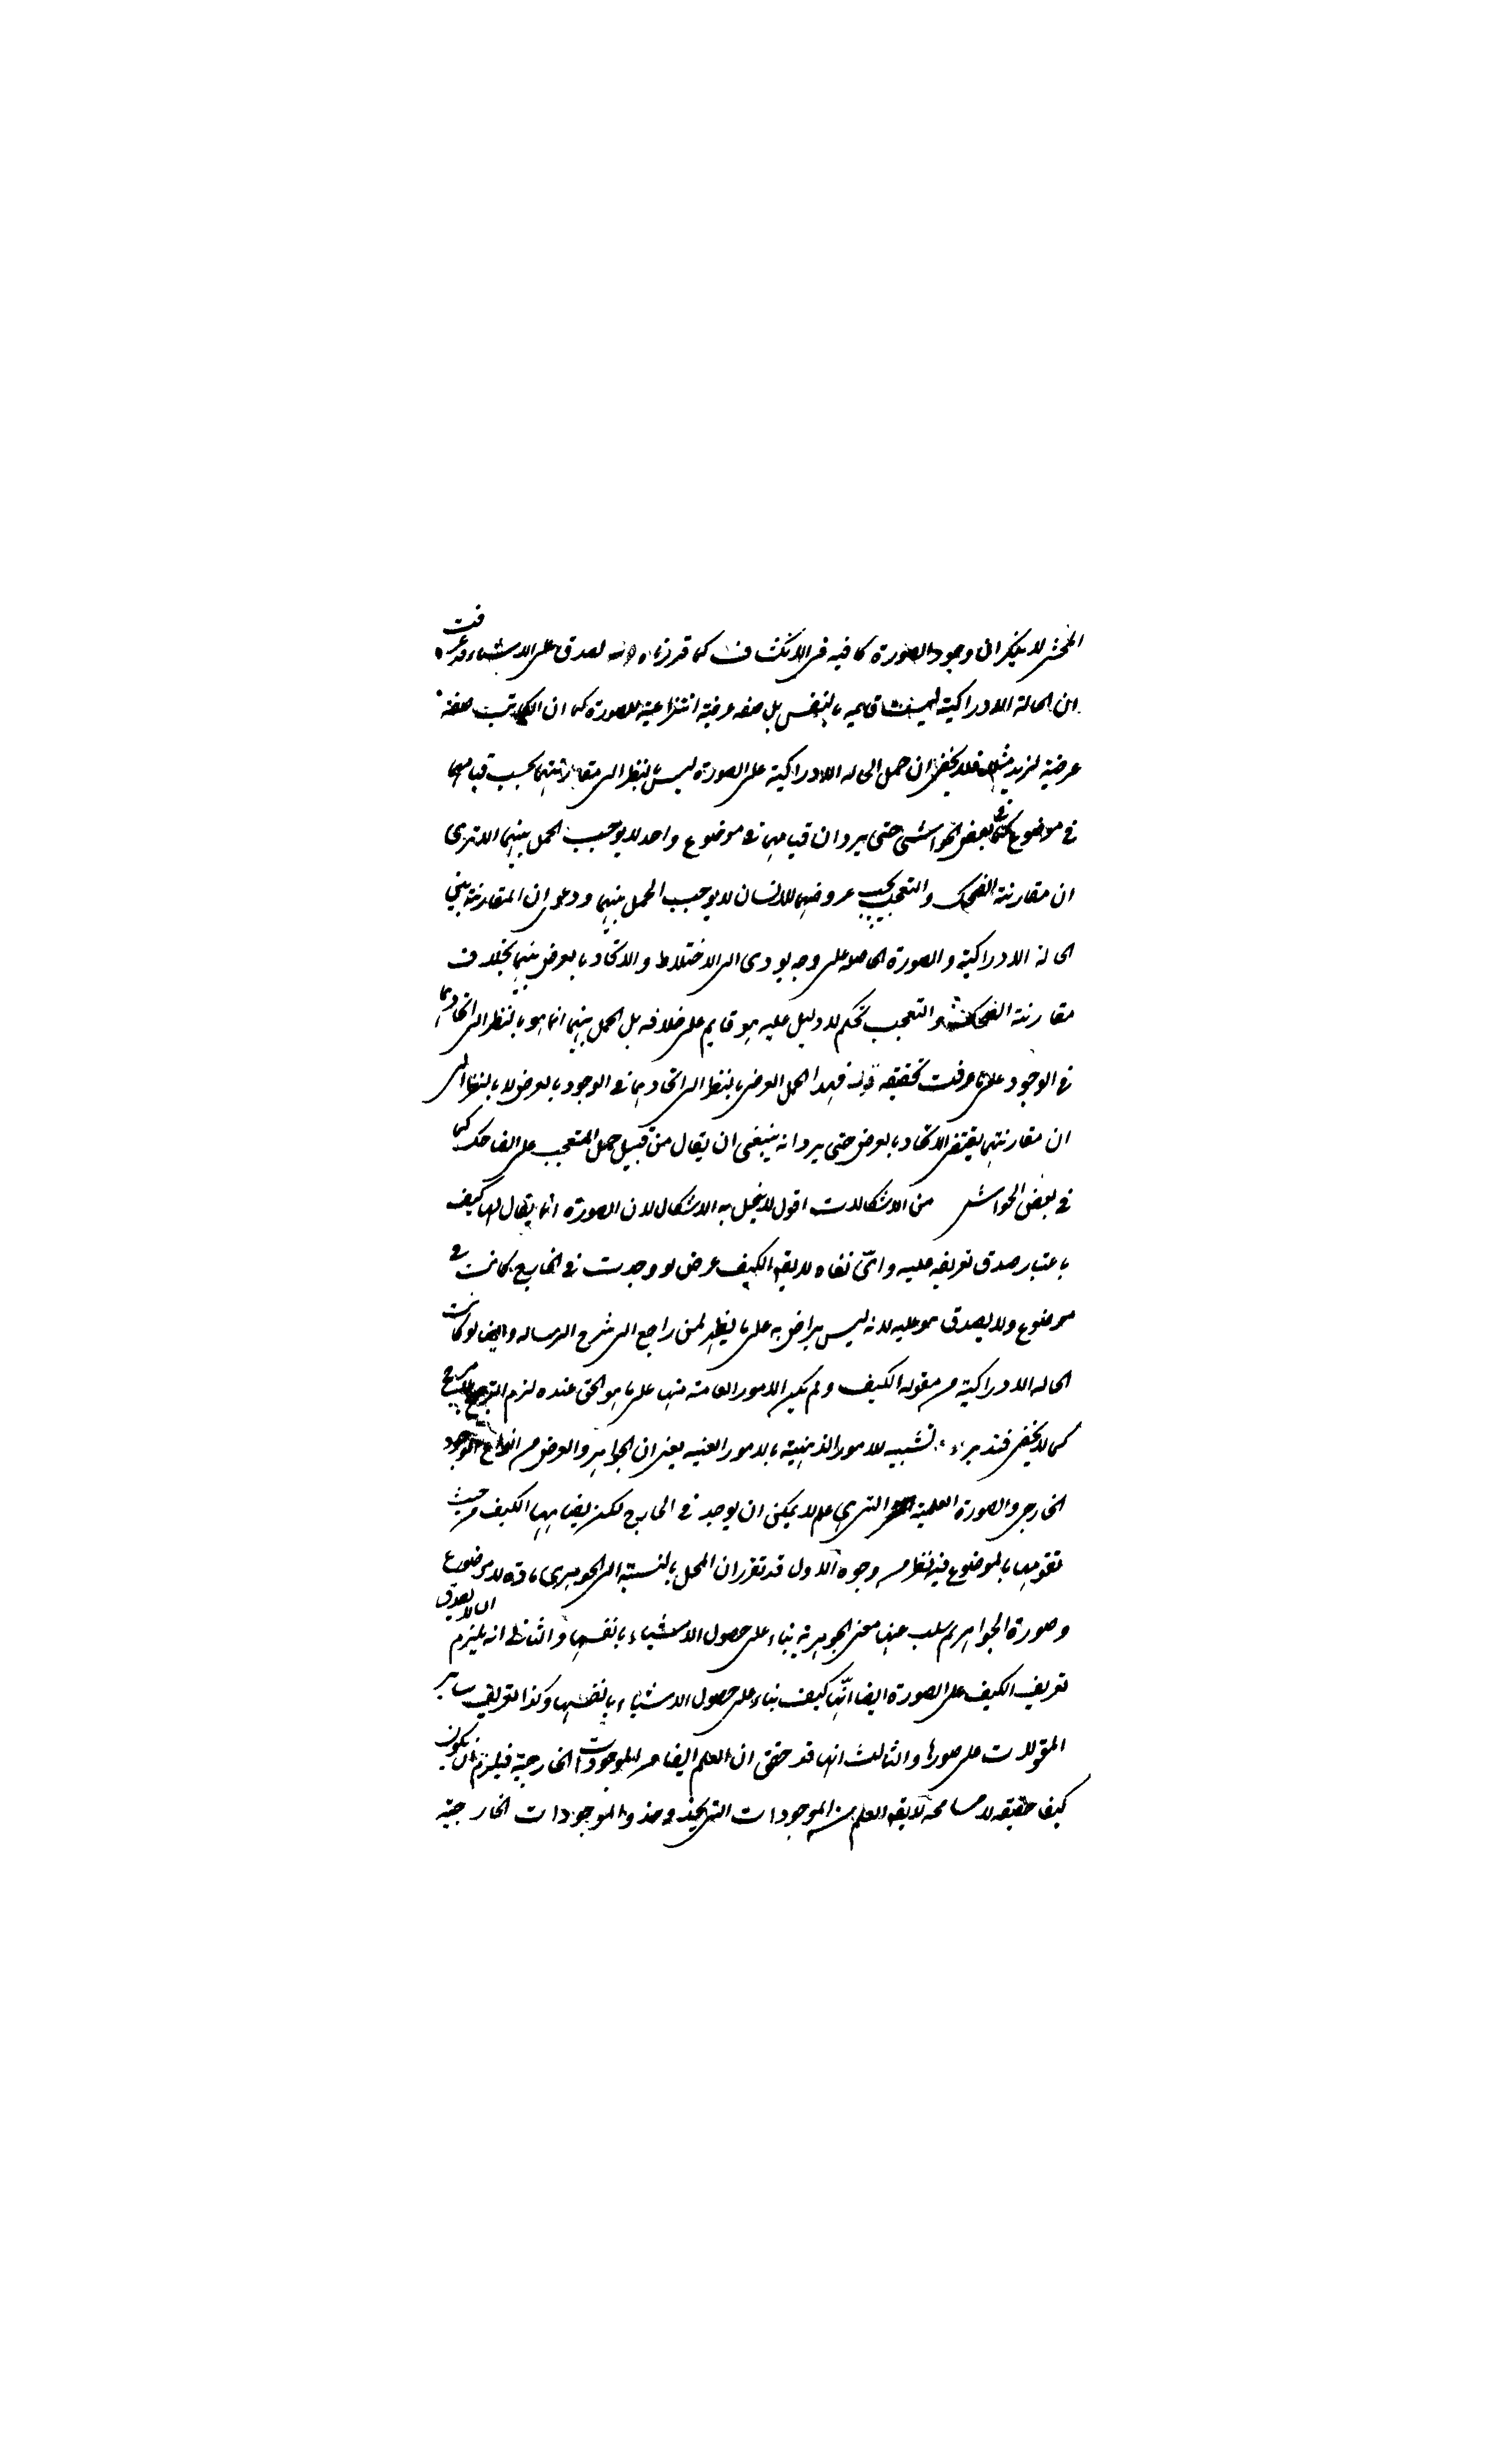 المحشى لا ينكر ان وجود الصورة كافيه فى الانكشاف كما قررناه قوله لصدق على الاشياء قد عرفت
ان الحالة الادراكية ليست قايمه بالنفس بل صفه عرضية انتزاعية للصورة كما ان الكاتب صفة
عرضية لزيد مثلا فلا يخفى ان حمل الحاله الادراكية على الصورة ليس بالنظر الى مقارنتهما بحسب قيامهما
فى موضوع كما فى بعض الحواشى حتى يرد ان قيامهما فى موضوع واحد لا يوجب الحمل بينهما الا ترى
ان مقارنة الضحك والتعجب بحسب عروضهما للانسان لا يوجب الحمل بينهما ودعوى ان المقارنة بين
الحالة الادراكية والصورة الحاصله على وجه يودى الى الاختلاط والاتحاد بالعرض بينهما بخلاف
مقارنة الضحك والتعجب تحكم لا دليل عليه هو قايم على خلافه بل الحمل بينهما انما هو بالنظر الى اتحادهما
فى الوجود على ما عرفت تحقيقه قوله فهذا الحمل العرضى بالنظر الى اتحادهما فى الوجود بالعرض لا بالنظر الى
ان مقارنتهما يقتضى الاتحاد بالعرض حتى يرد انه ينبغى ان يقال من قبيل حمل المتعجب على الضاحك كما
فى بعض الحواشى من الاشكالات اقول لا ينحل به الاشكال لان الصورة انما يقال لها كيف
باعتبار صدق تعريفه عليه وانى نفاه لا يقه الكيف عرض لو وجدت فى الخارج كانت فى
موضوع ولا يصدق هو عليه لانه ليس براض به على ما يظهر لمن راجع الى شرح الرساله وايضا لو كانت
الحاله الادراكية من مقوله الكيف ولم يكن الامور العامة منها على ما هو الحق عنده لزم الترجيح بلا مرجح
كما لا يخفى فتدبر قوله تشبيه للامور الذهنية بالامور العينيه يعنى ان الجواهر والعرض من انواع الموجود
الخارجى والصورة العلمية التى هى علم لا يمكن ان يوجد فى الخارج لكن يضاهيها الكيف من حيث
تقومها بالموضوع فيه نظر من وجوه الاول قد تقرر ان المحل بالنسبة الى الجوهرى مادة لا موضوع
وصورة الجواهر لم يسلب عنها معنى الجوهرية بناء على حصول الاشياء بانفسها والثانى انه يلزم ان لا يصدق
تعريف الكيف على الصورة ايضا انها كيف بناء على حصول الاشياء بانفسها وكذا تعريف ساير
المقولات على صورها والثالث انها قد حقق ان العلم ايضا من الموجودات الخارجية فيلزم ان يكون
كيفا حقيقه لا مسامحه لا يقه العلم من الموجودات التى يحذو حذو الموجودات الخارجية